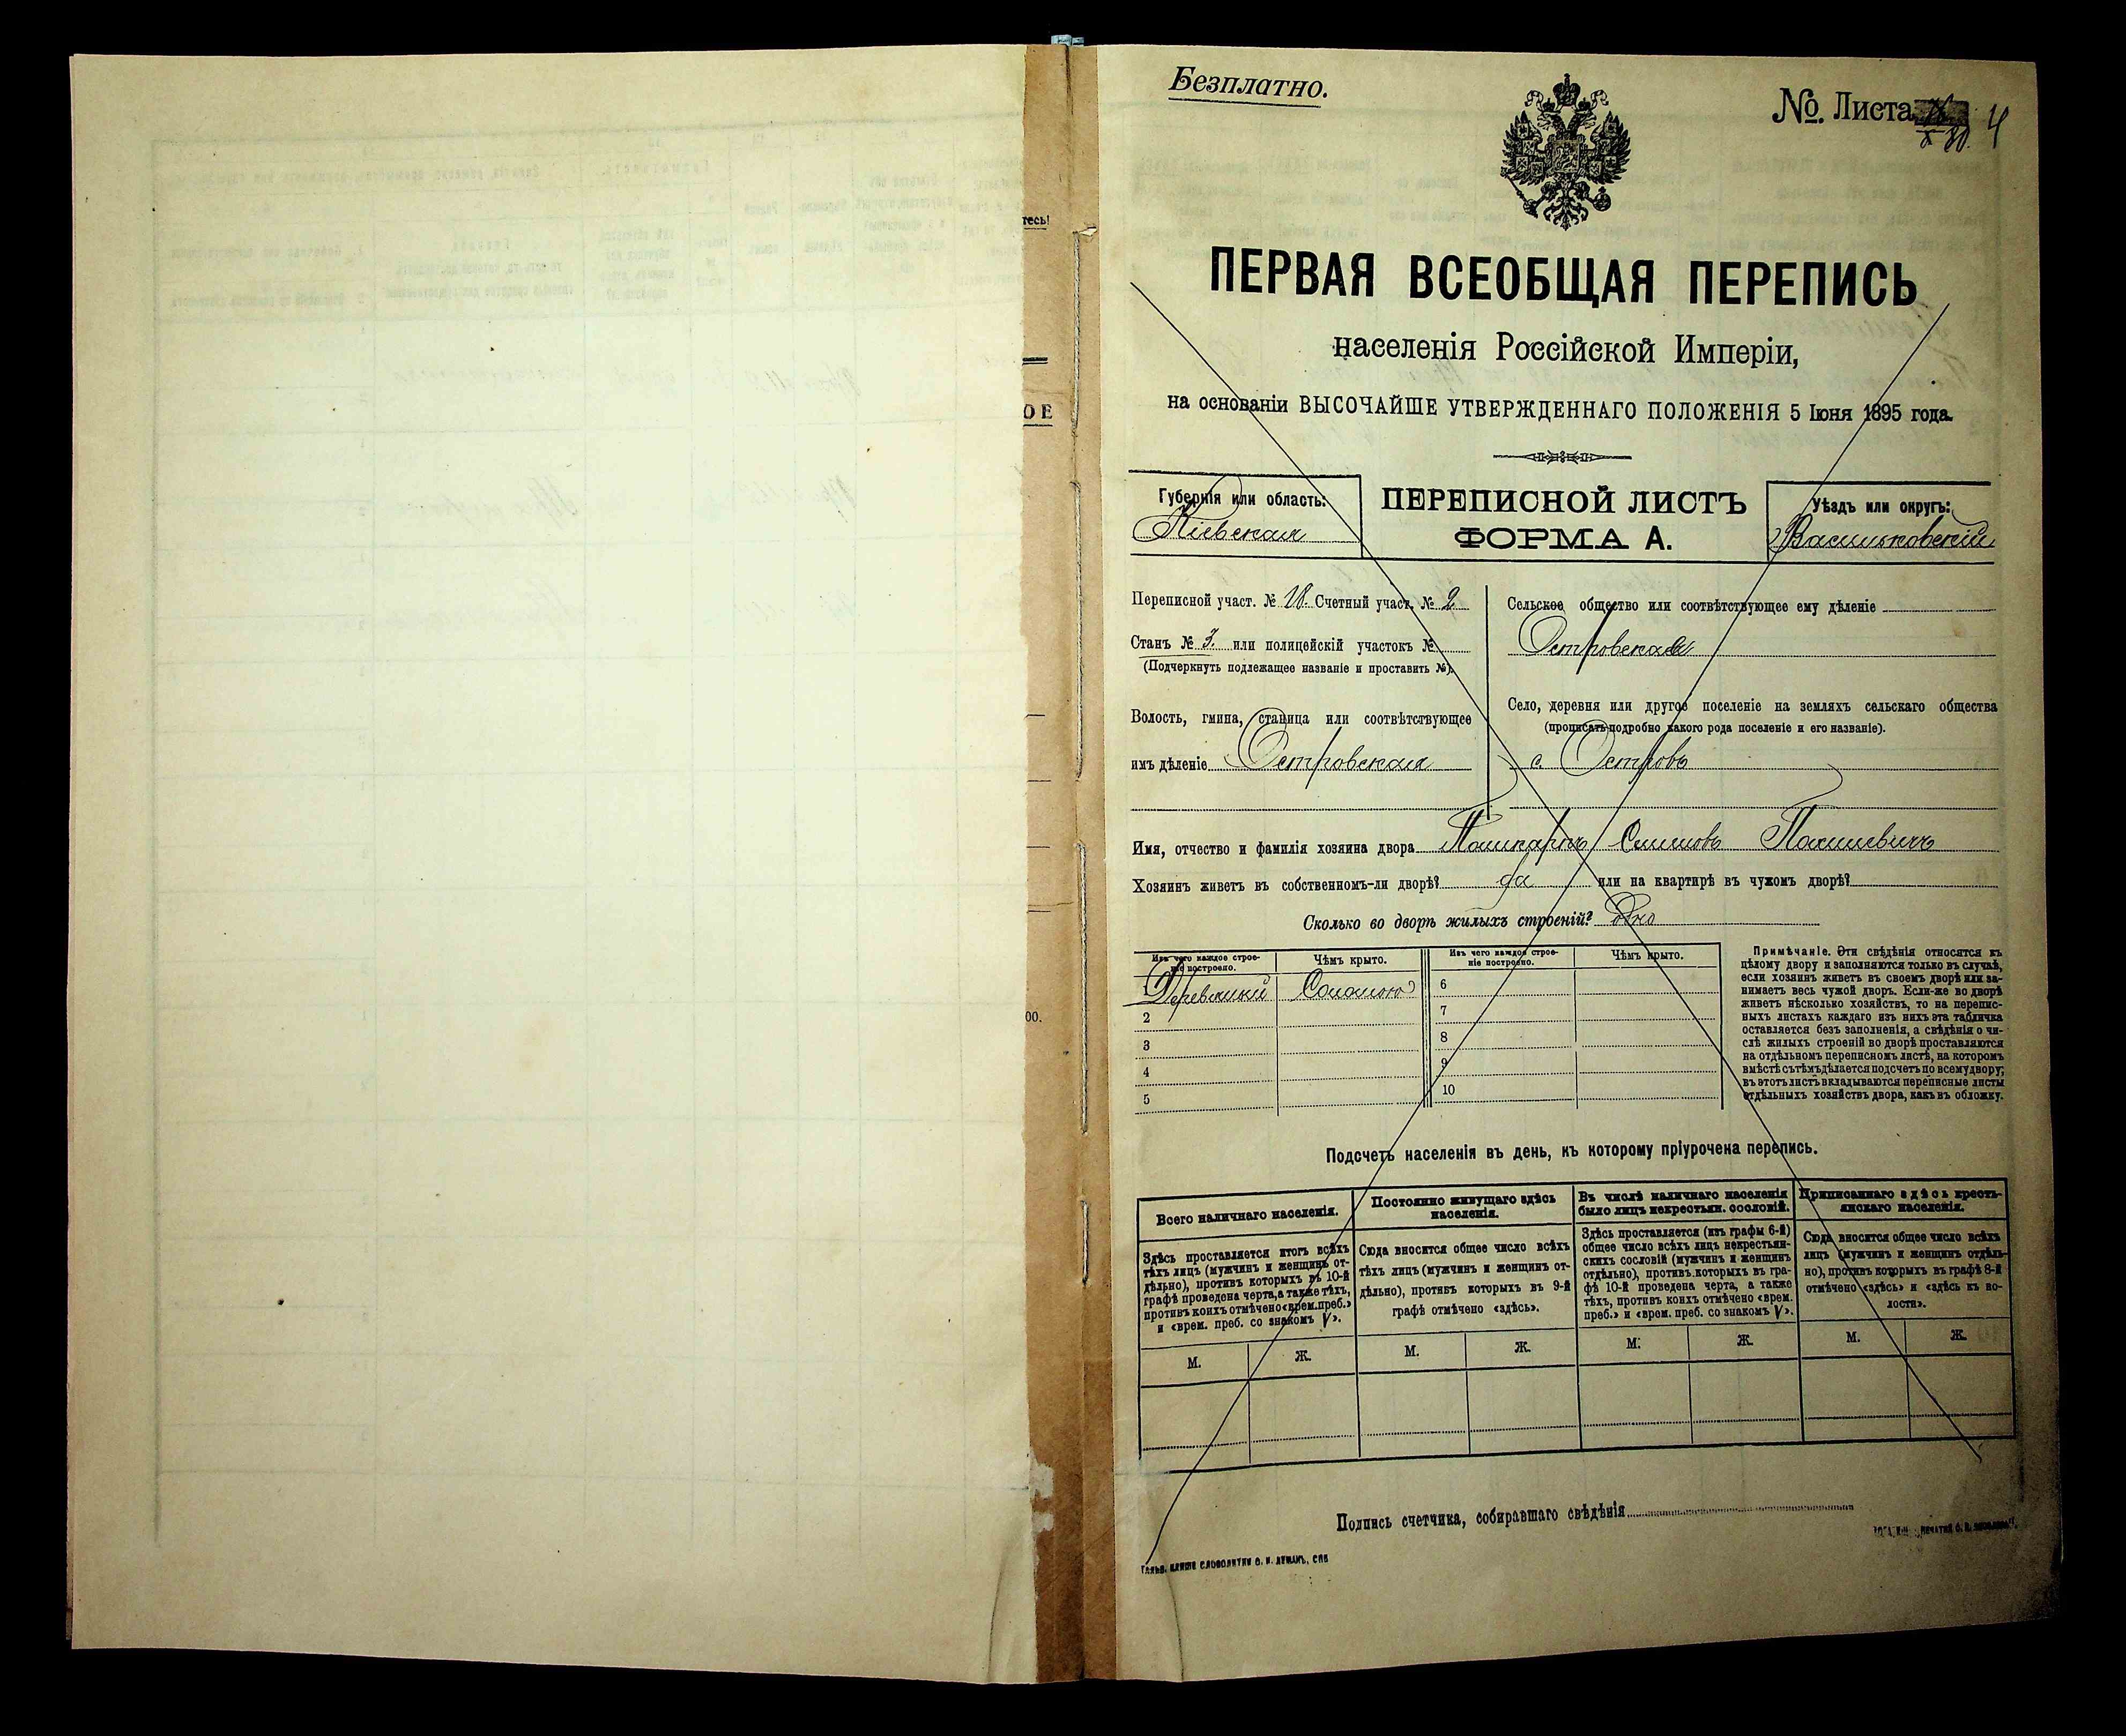 тесь!
ОЕ
00.
Безплатно.
№. Листа 4
ПЕРВАЯ ВСЕОБЩАЯ ПЕРЕПИСЬ
населенія Россійской Имперіи,
на основаніи ВЫСОЧАЙШЕ УТВЕРЖДЕННАГО ПОЛОЖЕНІЯ 5 Іюня 1895 года.
Губернія или область:
Кіевская
ПЕРЕПИСНОЙ ЛИСТЪ
ФОРМА А.
Уѣздъ или округъ:
Васильковскій
Переписной участ. № 18. Счетный участ. № 2
Станъ № 3. или полицейскій участокъ №
(Подчеркнуть подлежащее названіе и проставить №).
Волость, гмина, станица или соотвѣтствующее
имъ дѣленіе Островская
Сельское общество или соотвѣтствующее ему дѣленіе
Островское
Село, деревня или другое поселеніе на земляхъ сельскаго общества
(прописать подробно какого рода поселеніе и его названіе).
с. Островъ
Имя, отчество и фамилія хозяина двора
Хозяинъ живетъ въ собственномъ-ли дворѣ? да или на квартирѣ въ чужомъ дворѣ?
Сколько во дворѣ жилыхъ строеній? Одно
Изъ чего каждое строе-
ніе построено.
Чѣмъ крыто.
Изъ чего каждое строе-
ніе построено.
Чѣмъ крыто.
1 Соломою
2
3
4
5
6
7
8
9
10
Примѣчаніе. Эти свѣдѣнія относятся къ
цѣлому двору и заполняются только въ случаѣ,
если хозяинъ живетъ въ своемъ дворѣ или за-
нимаетъ весь чужой дворъ. Если-же во дворѣ
живетъ нѣсколько хозяйствъ, то на перепис-
ныхъ листахъ каждаго изъ нихъ эта табличка
оставляется безъ заполненія, а свѣдѣнія о чи-
слѣ жилыхъ строеній во дворѣ проставляются
на отдѣльномъ переписномъ листѣ, на которомъ
вмѣстѣ съ тѣмъ дѣлается подсчетъ по всему двору;
въ этотъ листъ вкладываются переписные листы
отдѣльныхъ хозяйствъ двора, какъ въ обложку.
Подсчетъ населенія въ день, къ которому пріурочена перепись.
Всего наличнаго населенія.
Здѣсь проставляется итогъ всѣхъ
тѣхъ лицъ (мужчинъ и женщинъ от-
дѣльно), противъ которыхъ въ 10-й
графѣ проведена черта, а также тѣхъ,
противъ коихъ отмѣчено «врем. преб.»
и «врем. преб. со знакомъ V».
М. Ж.
Постоянно живущаго здѣсь
населенія.
Сюда вносится общее число всѣхъ
тѣхъ лицъ (мужчинъ и женщинъ от-
дѣльно), противъ которыхъ въ 9-й
графѣ отмѣчено «здѣсь».
М. Ж.
Въ числѣ наличнаго населенія
было лицъ некрестьян. сословій.
Здѣсь проставляется (изъ графы 6-й)
общее число всѣхъ лицъ некрестьян-
скихъ сословій (мужчинъ и женщинъ
отдѣльно), противъ которыхъ въ гра-
фѣ 10-й проведена черта, а также
тѣхъ, противъ коихъ отмѣчено «врем.
преб.» и «врем. преб. со знакомъ V».
М. Ж.
Приписаннаго здѣсь кресть-
янскаго населенія.
Сюда вносится общее число всѣхъ
лицъ (мужчинъ и женщинъ отдѣль-
но), противъ которыхъ въ графѣ 8-й
отмѣчено «здѣсь» и «здѣсь къ во-
лости».
М. Ж.
Подпись счетчика, собиравшаго свѣдѣнія
Гальв. клише словолитни О. И. Леманъ, СПБ